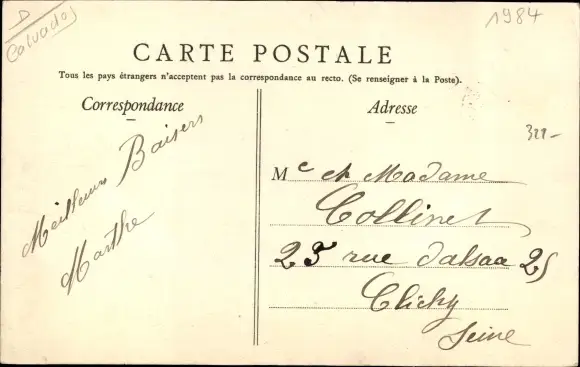 D
Calvados
1984
CARTE POSTALE
Tous les pays étrangers n'acceptent pas la correspondance au recto. (Se renseigner à la Poste).
Correspondance
Adresse
322-
Meilleurs Baisers
Marthe
Mr et Madame
Collinet
25 rue d'alsace 25
Clichy
Seine